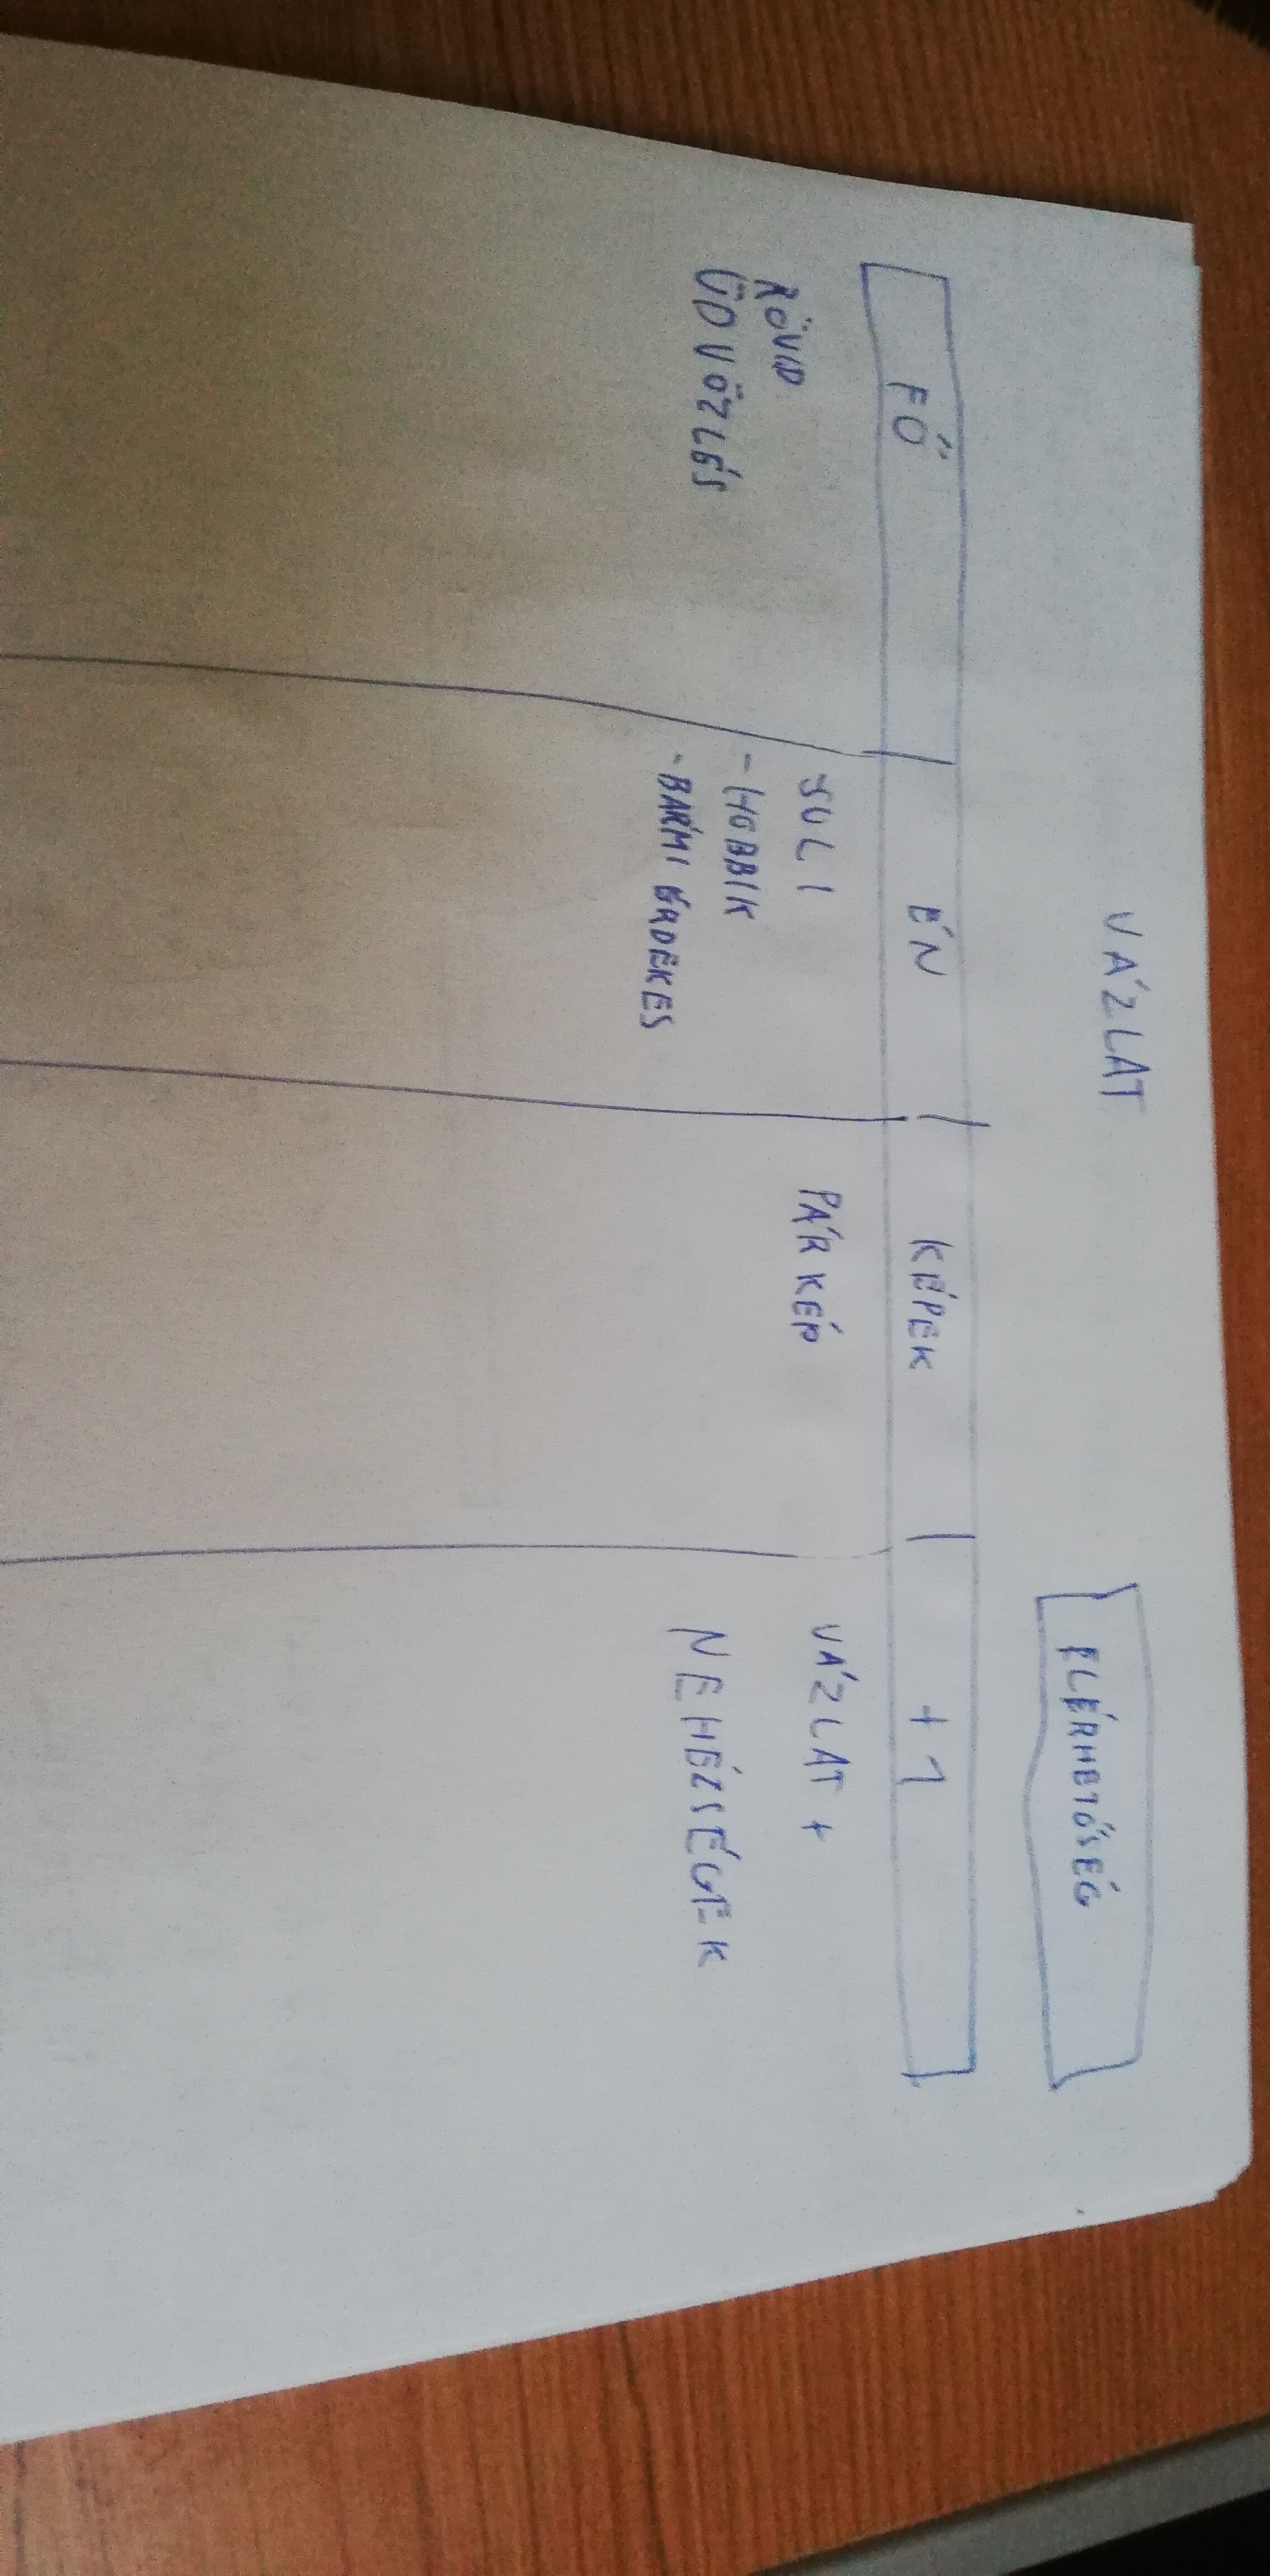 VÁZLAT
ELÉRHETŐSÉG
FŐ
ÉN
KÉPEK
+1
RÖVID
ÜDVÖZLÉS
-SULI
-HOBBIK
-BÁRMI ÉRDEKES
PÁR KÉP
VÁZLAT +
NEHÉZSÉGEK